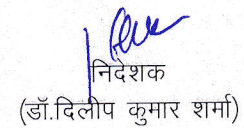 निदेशक
(डॉ.दिलीप कुमार शर्मा)